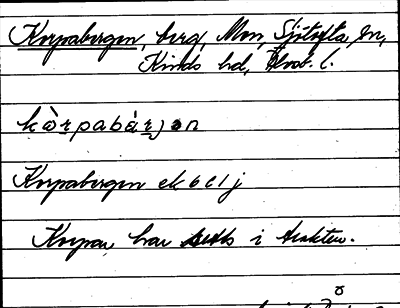 Korpabergen, berg, Mon, Sjötofta sn,
Kinds hd, Älvsb. l.
kò̀rpabàrjən
Korpabergen ek 6 C 1 j
Korpar har setts i trakten.